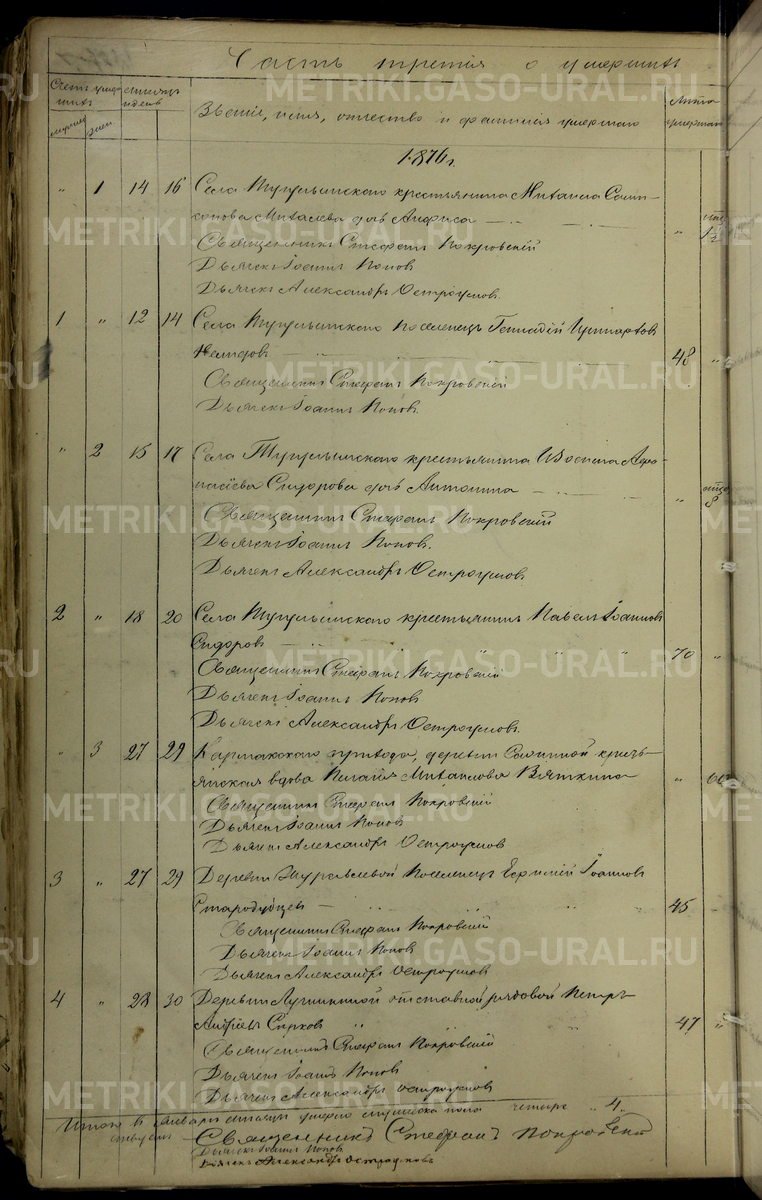 Часть третія о умершихъ
Счетъ умер
шихъ
Мѣсяцъ
и день
Званіе, имя, отчество и фамилія умершаго
Лѣта
умершаго
1876 г.
" 1 14 16 Села Тугулымскаго крестьянина Михаила Самп
сонова Михалева дочь Анфиса "
Священникъ Стефанъ Покровскій
Дьячекъ Іоаннъ Поповъ
Дьячекъ Александръ Остроумовъ.
1 " 12 14 Села Тугулымскаго поселенецъ Геннадій
48 "
Священникъ Стефанъ Покровскій
Дьячекъ Іоаннъ Поповъ.
" 2 15 17 Села Тугулымскаго крестьянина Афо
насіева Сидорова дочь Антонина "
Священникъ Стефанъ Покровскій
Дьячекъ Іоаннъ Поповъ.
Дьячекъ Александръ Остроумовъ.
2 " 18 20 Села Тугулымскаго крестьянинъ Павелъ Іоанновъ
Сидоровъ 70 "
Священникъ Стефанъ Покровскій
Дьячекъ Іоаннъ Поповъ
Дьячекъ Александръ Остроумовъ.
" 3 27 29 Кармакскаго прихода, деревни крестъ-
янская вдова Михайлова Вяткина "
Священникъ Стефанъ Покровскій
Дьячекъ Іоаннъ Поповъ
Дьячекъ Александръ Остроумовъ
3 " 27 29 Деревни Журавлевой поселенецъ Іоанновъ
Стародубцевъ 45
Священникъ Стефанъ Покровскій
Дьячекъ Іоаннъ Поповъ
Дьячекъ Александръ Остроумовъ
4 " 28 30 Деревни Лушниковой отставной рядовой Петръ
Андреевъ 47 "
Священникъ Стефанъ Покровскій
Дьячекъ Іоаннъ Поповъ
Дьячекъ Александръ Остроумовъ
Итого въ Январѣ мѣсяцѣ умерло мужеска пола четыре " 4.
Священникъ Стефанъ Покровскій
Дьячекъ Іоаннъ Поповъ
Дьячекъ Александръ Остроумовъ
METRIKI.GASO-URAL.RU